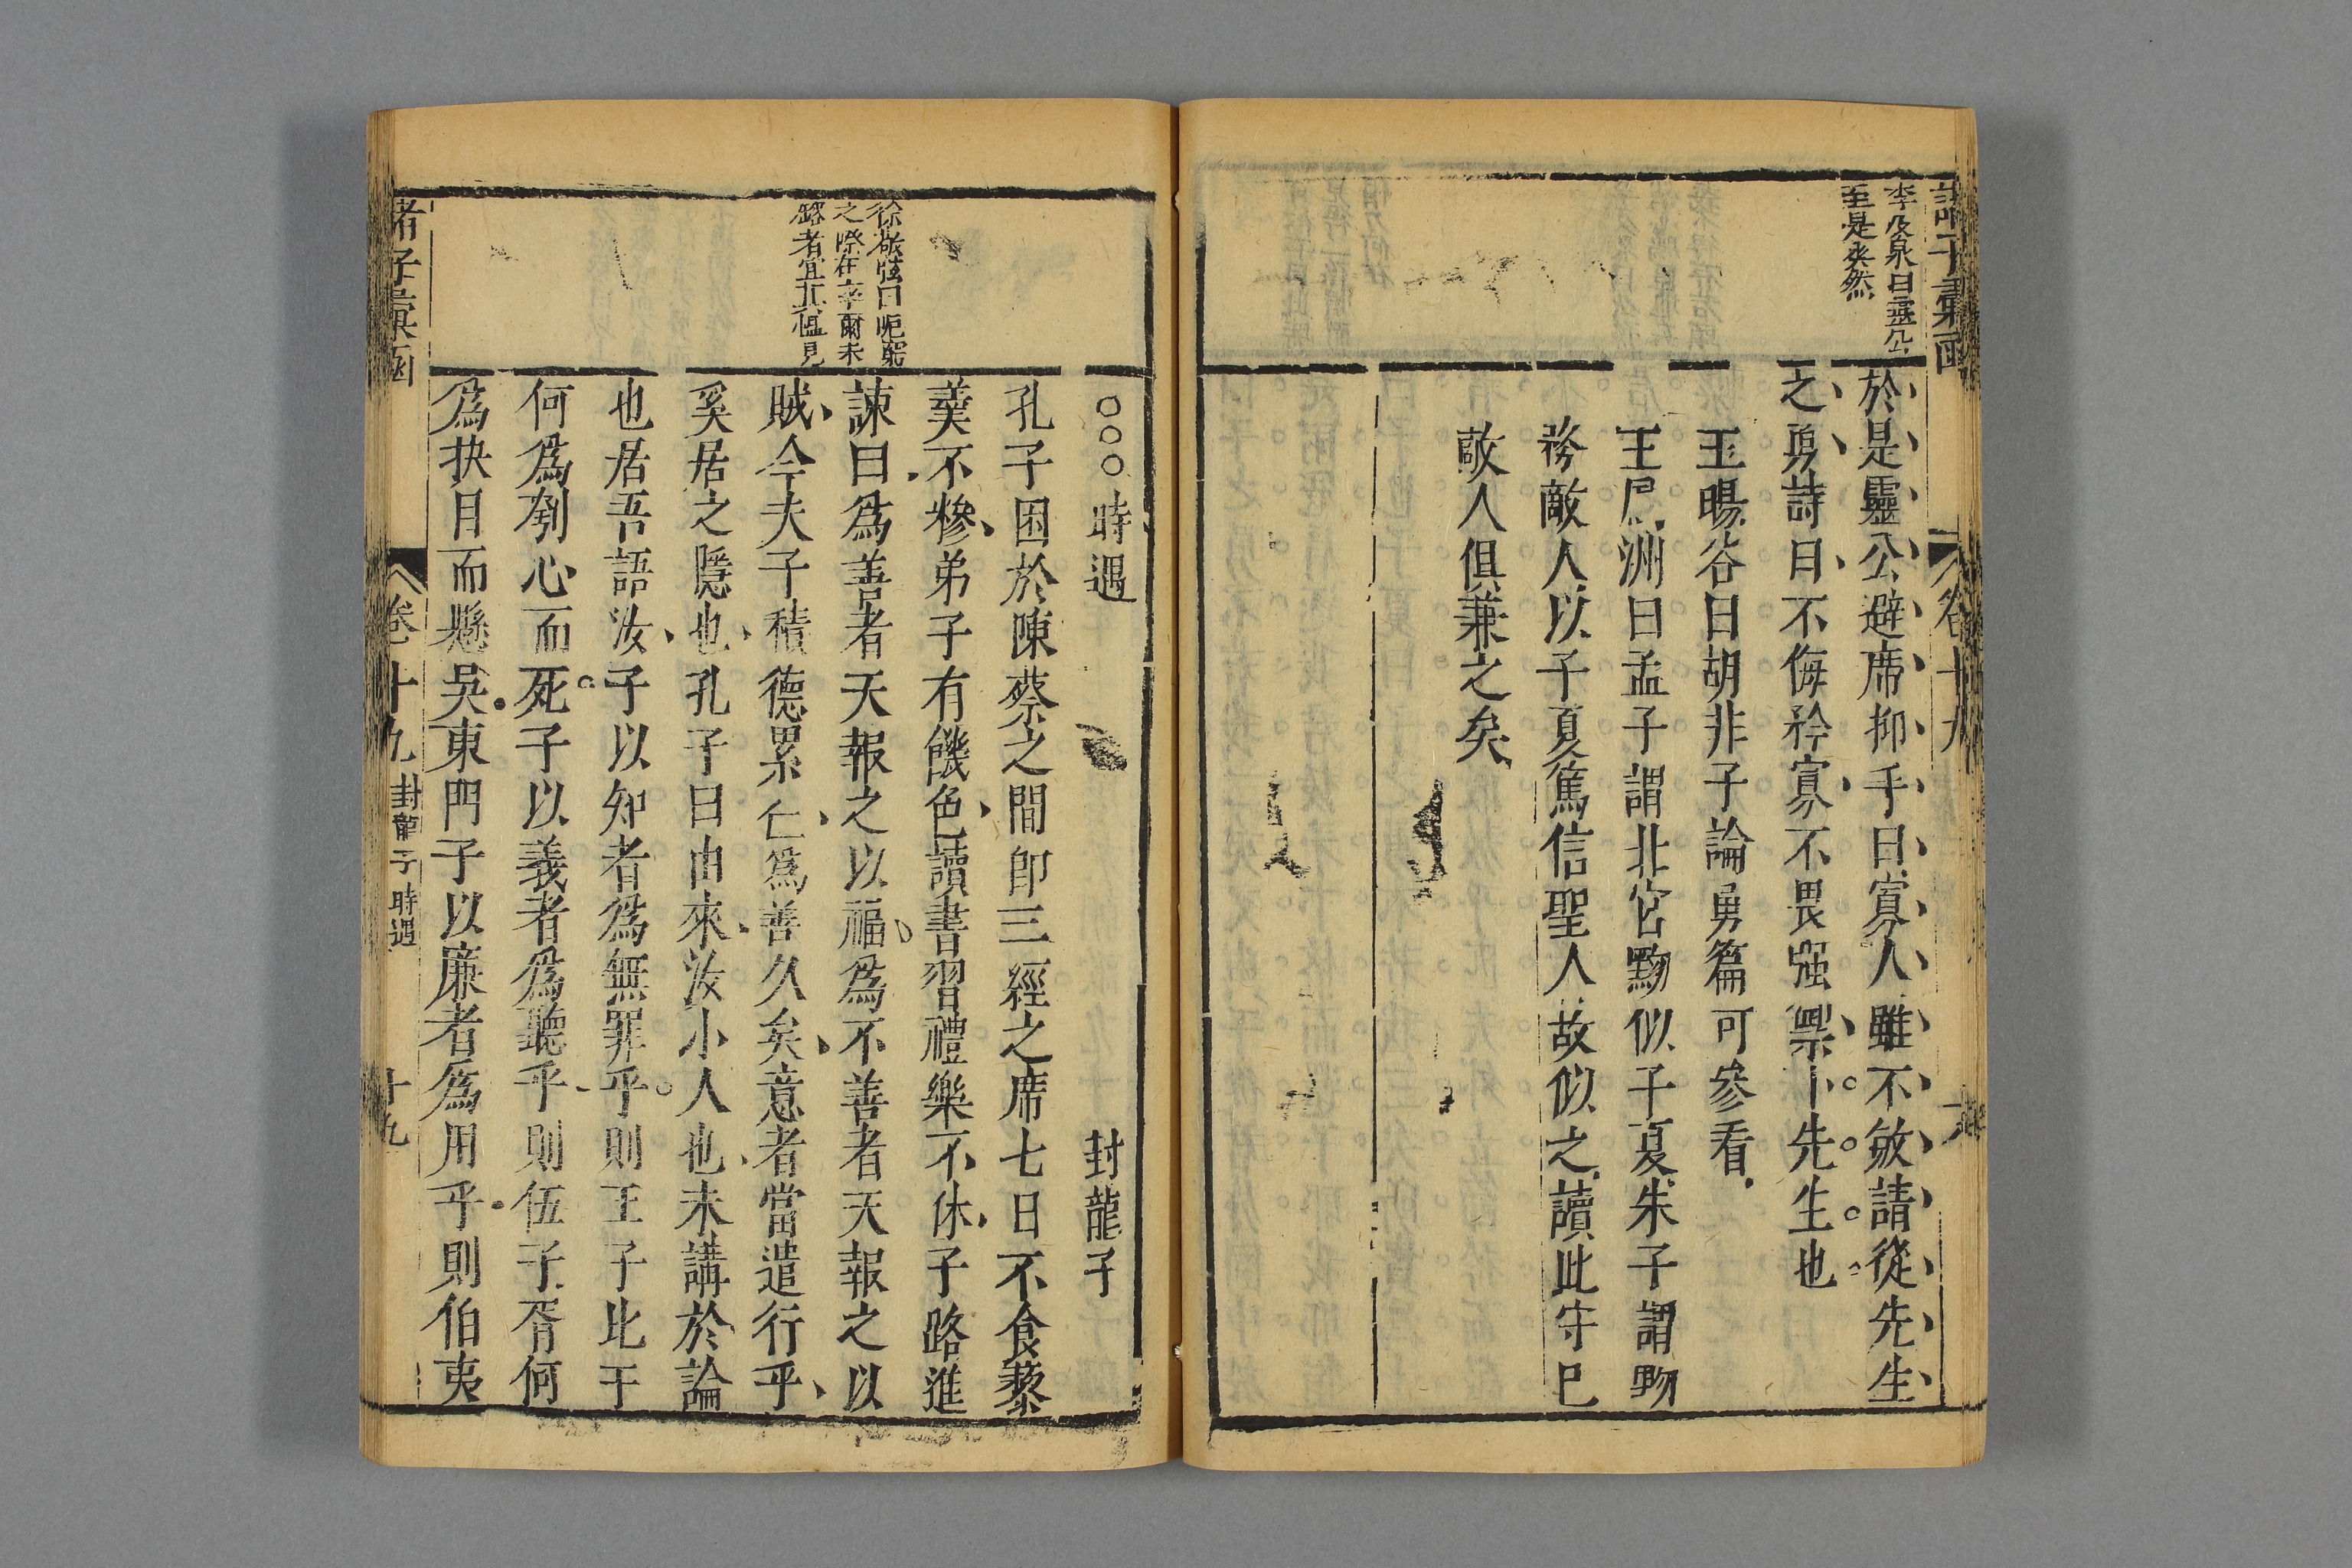 李及泉曰靈公
至是爽然
於是靈公避席抑手曰寡人雖不敏請從先生
之勇詩曰不侮矜寡不畏强禦卜先生也
王暘谷曰胡非子論勇篇可參看
王鳳洲曰孟子謂北宮黝似子夏朱子謂黝
務敵人以子夏篤信聖人故似之讀此守已
敵人俱兼之矣
卷十九
徐敬弦曰阨窮
之際在率爾未
路者宜其慍見
○○○時遇 封龍子
孔子困於陳蔡之間卽三經之席七日不食藜
羹不糝弟子有饑色讀書習禮樂不休子路進
諫曰爲善者天報之以福爲不善者天報之以
賊今夫子積德累仁爲善久矣意者當遣行乎
奚居之隱也孔子曰由來汝小人也未講於論
也居吾語汝子以知者爲無罪乎則王子比干
何爲刳心而死子以義者爲聽乎則伍子胥何
爲抉目而懸吳東門子以廉者爲用乎則伯夷
諸子彙函 卷十九 封龍子 時遇 十九